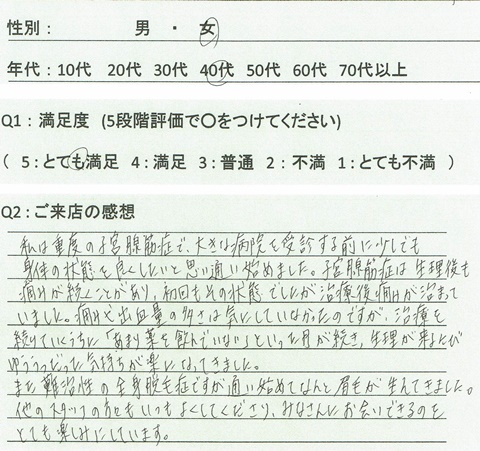 性別： 男 ・ 女
年代：10代 20代 30代 40代 50代 60代 70代以上
Q1：満足度 (5段階評価で〇をつけてください)
( 5：とても満足 4：満足 3：普通 2：不満 1：とても不満 )
Q2：ご来店の感想
私は重度の子宮腺筋症で、大きな病院を受診する前に少しでも
身体の状態を良くしたいと思い通い始めました。子宮腺筋症は生理後も
痛みが続くことがあり、初回もその状態でしたが治療後痛みが治まって
いました。痛みや出血量の多さは気にしていなかったのですが、治療を
続けていくうちに「あまり薬を飲んでいない」といった月が続き、生理が来るたび
ゆううつだった気持ちが楽になってきました。
また難治性の全身脱毛症ですが通い始めてなんと眉毛が生えてきました。
他のスタッフの方もいつもよくしてくださり、みなさんにお会いできるのを
とても楽しみにしています。